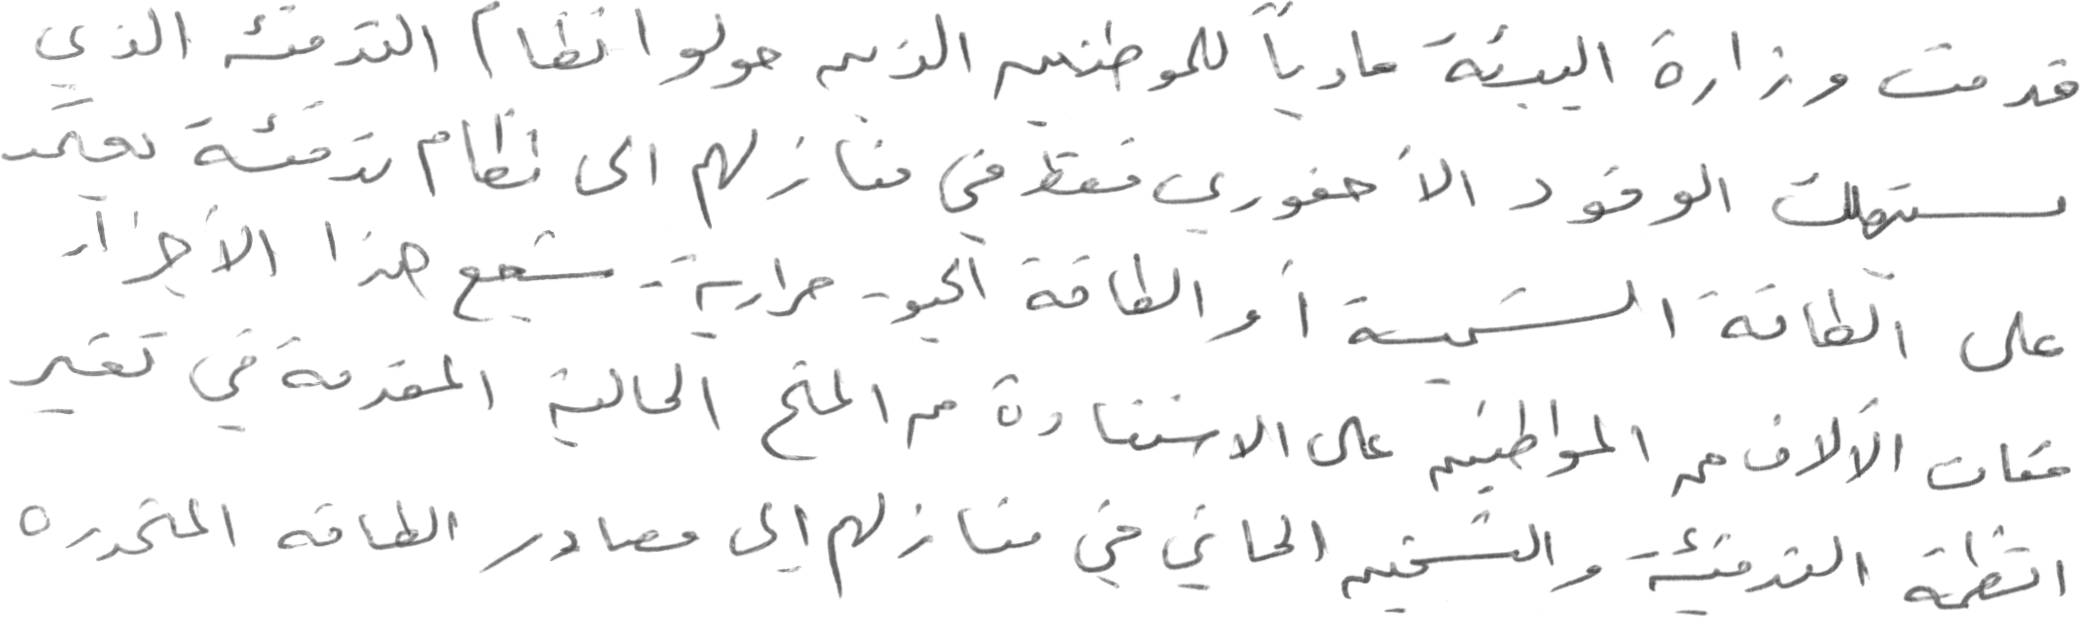 قدمت وزارة البيئة مادياً للموطنين الذين حولوا نظام التدفئة الذي
يستهلك الوقود الأحفوري فقط في منازلهم الى نظام تدفئة يعتمد
على الطاقة الشمسية أو الطاقة الحيو-حرارية- شجع هذا الأجراء
مئات الألاف من المواطنين على الاستفادة من المنح الحالية المقدمة في تغير
انظمة التدفئية والتسخين الحاني في منازلهم إلى مصادر الطاقه المتجدره